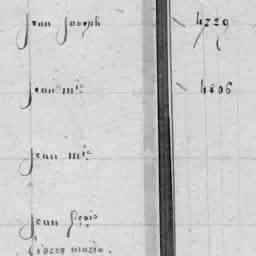 Jean Joseph 4229
Jean mie 4206
Jean mie
Jean